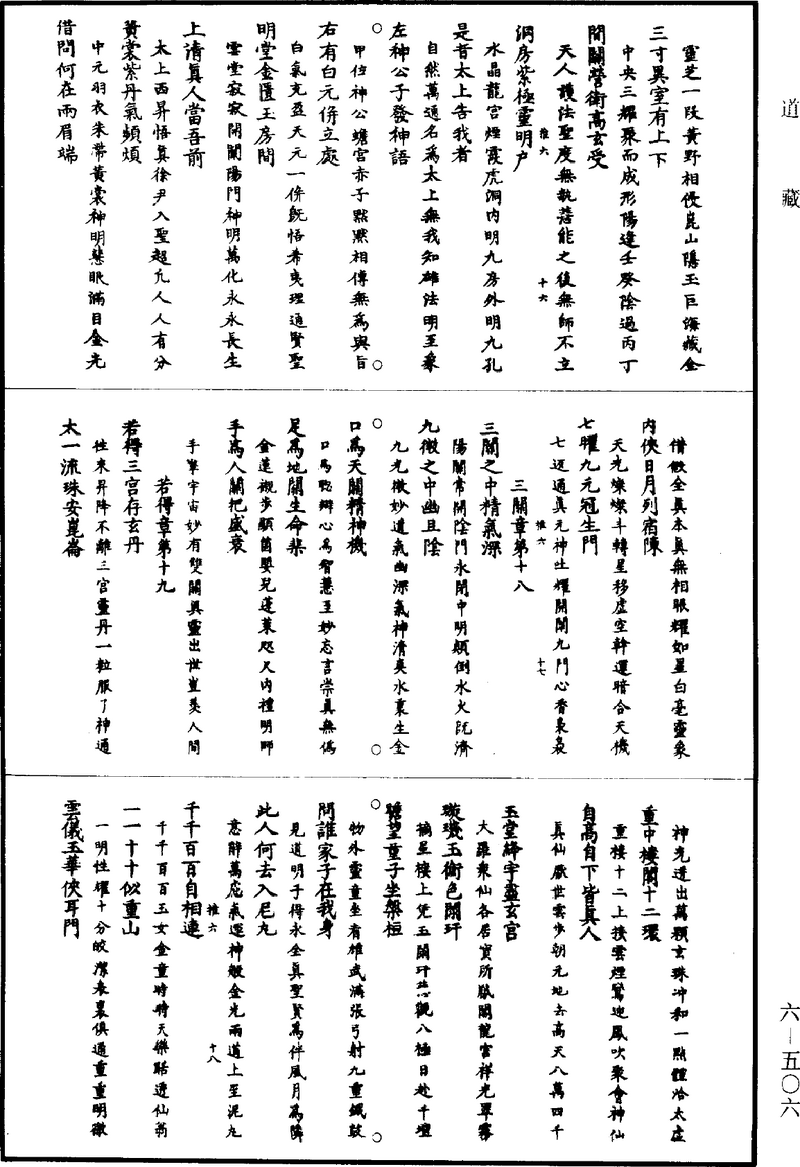 道藏
靈芝一段黃野相侵崑山隱玉巨海藏金
三寸異室有上下
中央三耀聚而成形陽逢壬癸陰過丙丁
間關營衛高玄受
天人護法聖度無執菩能之後無師不立
推六
十六
洞房紫極靈明戶
水晶龍宮煙霞虎洞內明九房外明九孔
是昔太上告我者
自然萬通名為太上無我知雄法明至象
左神公子發神語
甲位神公蟾宮赤子默默相傳無為與旨
右有白元併立處
白氣充盈天元一併既悟希夷理通賢聖
明堂金匱玉房間
雲堂寂寂開闔陽門神明萬化永永長生
上清真人當吾前
太上西昇悟真徐尹入聖超凡人人有分
黃裳紫丹氣頻煩
中元羽衣朱帶黃裳神明慧眼滿目金光
借問何在兩眉端
借假全真本真無相眼耀如星白毫靈象
內俠日月列宿陳
天光燦燦斗轉星移虛空幹運暗合天機
七曜九元冠生門
七返通真元神吐耀開闔九門心香裊裊
推六
十七
三關章第十八
三關之中精氣深
陽關常開陰門永閉中明顛倒水火既濟
九微之中幽且陰
九光微妙道氣幽深氣神清爽水裏生金
口為天關精神機
口為聰辯心為智慧至妙忘言崇真無偽
足為地關生命棐
金蓮襯步顯茵嬰兒蓬萊咫尺內禮明師
手為人關把盛衰
手掌宇宙妙有雙關真靈出世豈羨人間
若得章第十九
若得三宮存玄丹
性來昇降不離三宮靈丹一粒服了神通
太一流珠安崑崙
神光迸出萬顆玄珠冲和一點體洽太虛
重中樓閣十二環
重樓十二上接雲煙鸞迎鳳吹聚會神仙
自高自下皆真人
真仙厭世雲步朝元地去高天八萬四千
玉堂絳宇盡玄宮
大羅眾仙各居寶所賊關龍宮祥光罩霧
璇璣玉衡色闌玕
摘星樓上凭玉闌玕悲觀八極日赴千壇
瞻望童子坐槃桓
物外靈童坐看雄武滿張弓射九重鐵鼓
問誰家子在我身
見道明子得永全真聖賢為伴風月為隣
此人何去入尼丸
意醉萬應氣運神般金光兩道上至泥丸
千千百百自相連
推六
十八
千千百百玉女金童時時天樂賠透仙翁
一一十十似重山
一明性耀十分皎潔表裏俱通重重明徹
雲儀玉華俠耳門
六—五〇六